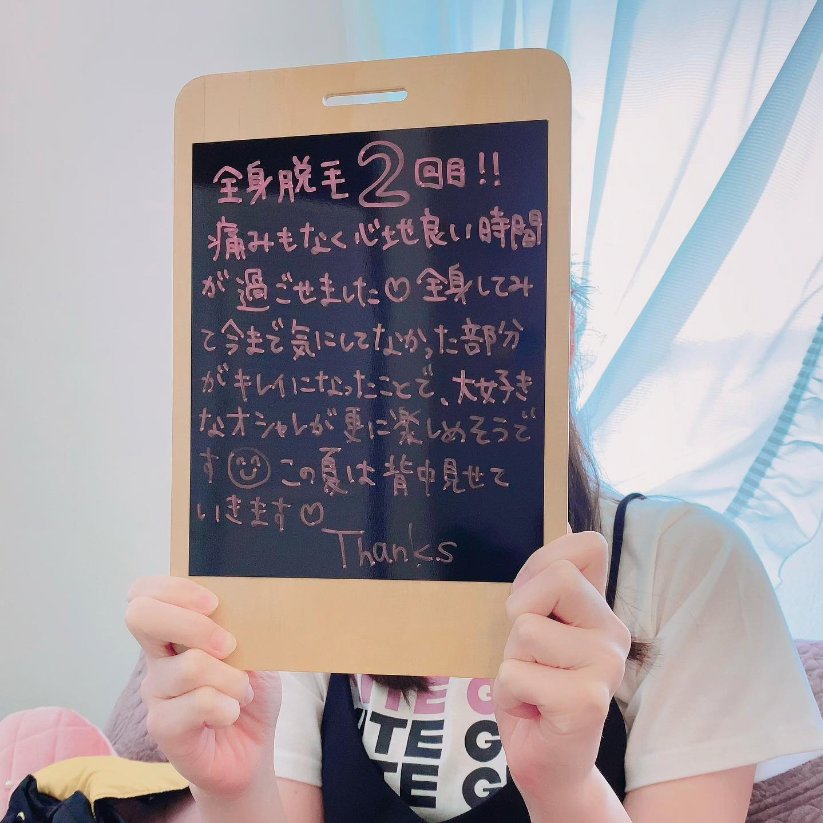 全身脱毛2回目!!
痛みもなく心地良い時間
が過ごせました♡全身してみ
て今まで気にしてなかった部分
がキレイになったことで、大好き
なオシャレが更に楽しめそうで
す☺この夏は背中見せて
いきます♡
Thanks
ITE G
ITE G
TE G